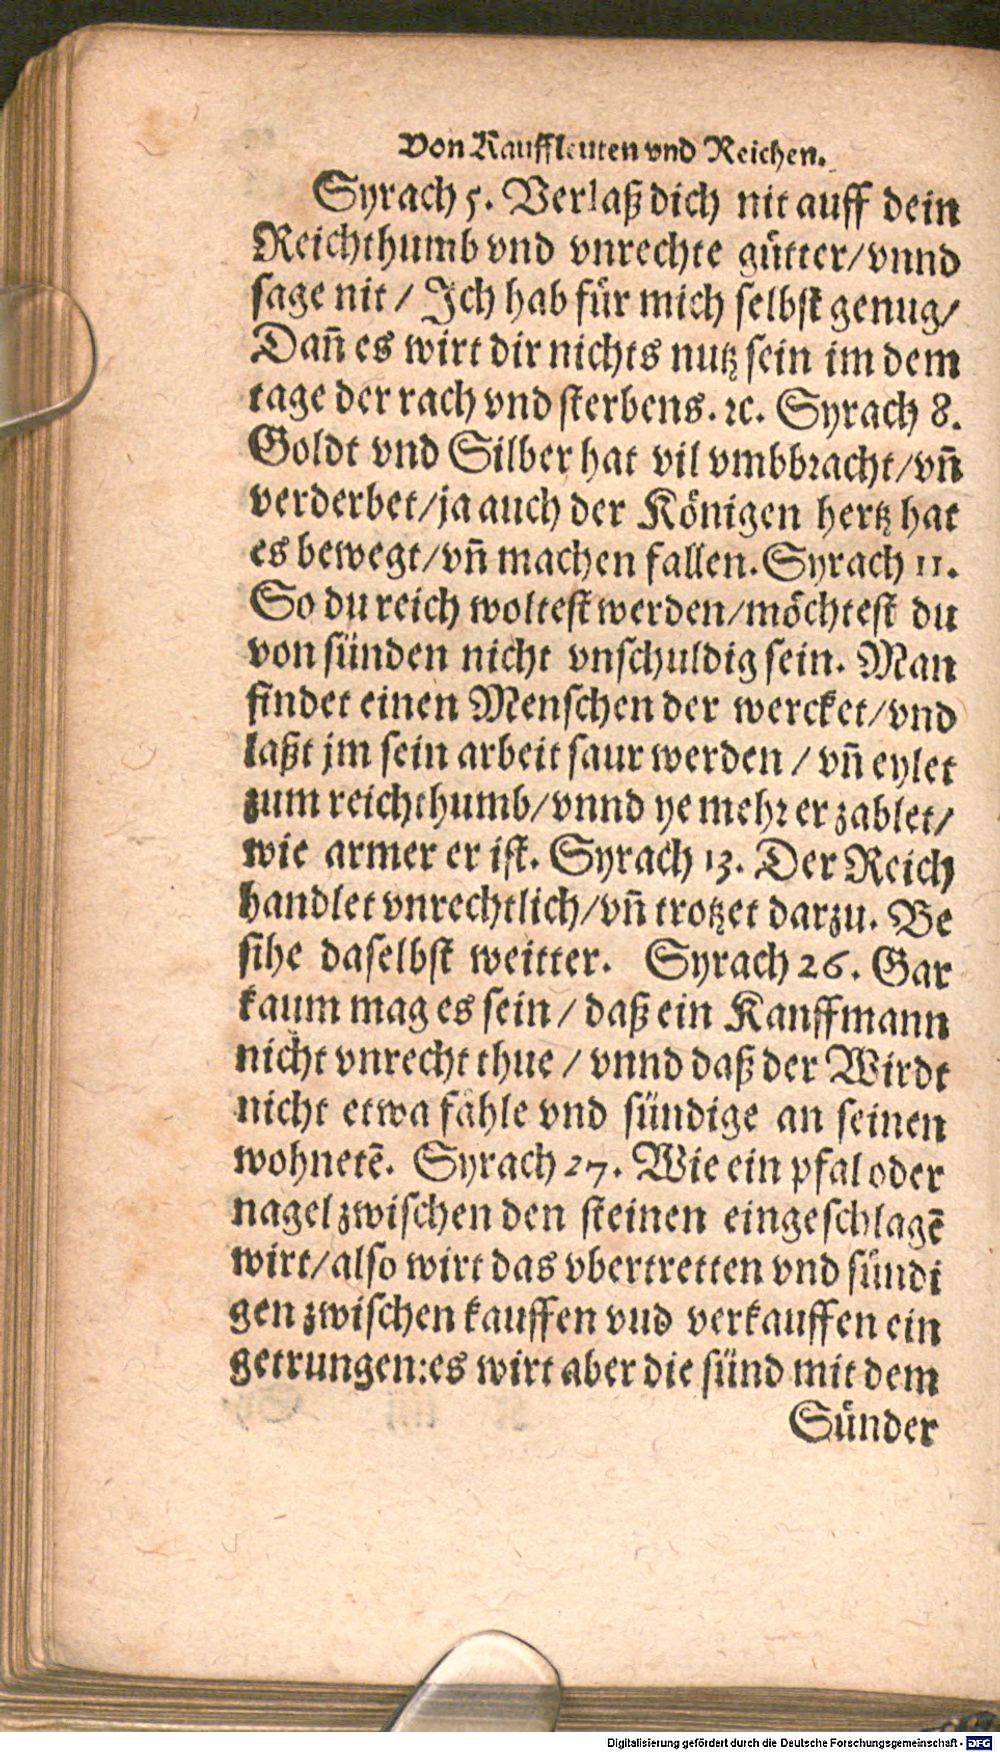 Von Kauffleuten vnd Reichen.
Syrach 5. Verlaß dich nit auff dein
Reichthumb vnd vnrechte gütter/vnnd
sage nit / Ich hab für mich selbst genug/
Dañ es wirt dir nichts nutz sein im dem
tage der rach vnd sterbens. ꝛc. Syrach 8.
Goldt vnd Silber hat vil vmbbracht/vñ
verderbet/ja auch der Königen hertz hat
es bewegt/vñ machen fallen. Syrach 11.
So du reich woltest werden/möchtest du
von sünden nicht vnschuldig sein. Man
findet einen Menschen der wercket/vnd
laßt jm sein arbeit saur werden / vñ eylet
zum reichthumb/vnnd ye mehr er zablet/
wie armer er ist. Syrach 13. Der Reich
handlet vnrechtlich/vñ trotzet darzu. Be
sihe daselbst weitter. Syrach 26. Gar
kaum mag es sein / daß ein Kanffmann
nicht vnrecht thue / vnnd daß der Wirdt
nicht etwa fähle vnd sündige an seinen
wohnetē. Syrach 27. Wie ein pfal oder
nagel zwischen den steinen eingeschlagē
wirt/also wirt das vbertretten vnd sündi
gen zwischen kauffen vud verkauffen ein
getrungen:es wirt aber die sünd mit dem
Sünder
Digitalisierung gefördert durch die Deutsche Forschungsgemeinschaft - DFG